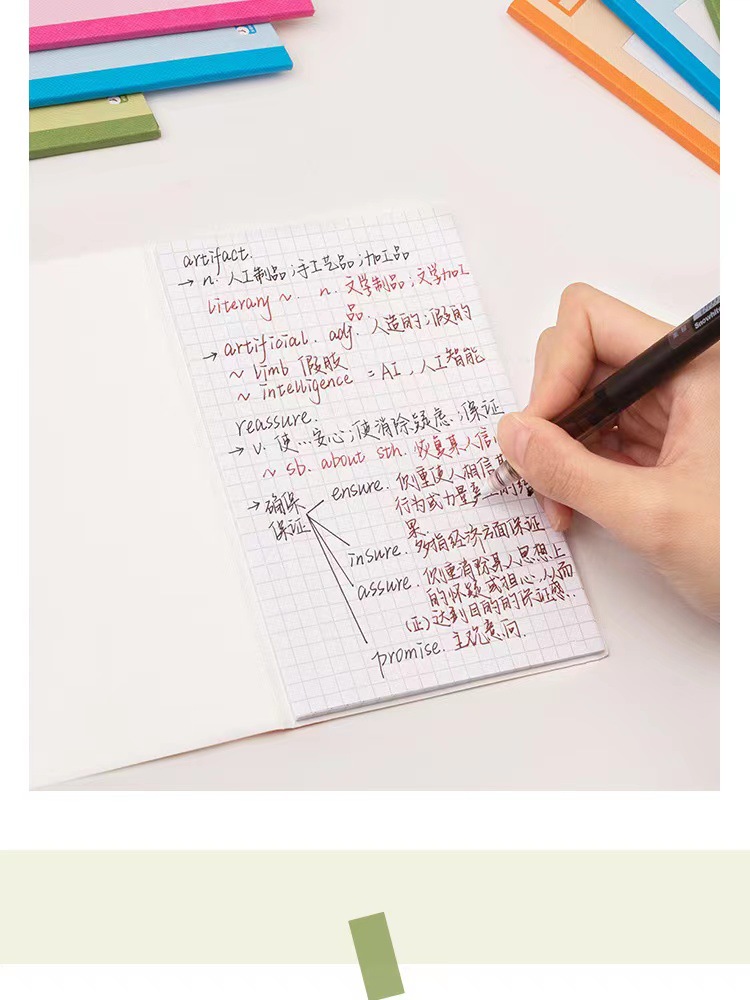 artifact.
→ n. 人工制品;手工艺品;加工品
literary ~. n. 文学制品;文学加工
品
→ artificial. adj. 人造的;假的
~ limb 假肢
~ intelligence = AI, 人工智能
reassure.
→ v. 使…安心;使消除疑虑;保证
~ sb. about sth. 恢复某人信
→ 确保
保证
ensure. 侧重使人相信
行为或力量产 的结
果.
insure. 多指经济方面保证
assure. 侧重消除某人思想上
的怀疑或担心,从而
(正)达到目的的保证感.
promise. 主观意向.
Snowhite